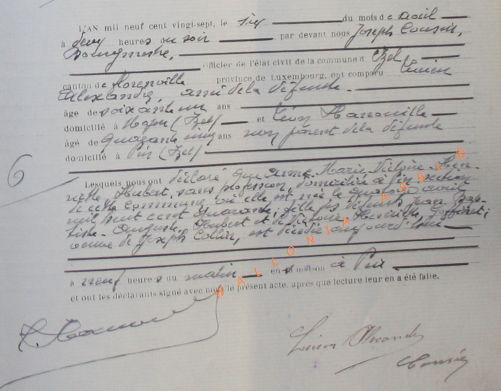 L'AN mil neuf cent vingt-sept, le six du mois de avril
à deux heures du soir par devant nous Joseph Cousin,
Bourgmestre, Officier de l'état civil de la commune d'Izel
canton de Florenville province de Luxembourg, ont comparu Lucien
Alexandre, ami de la défunte
âgé de soixante un ans
domicilié à Moyen (Izel) et Léon
âgé de quarante cinq ans non parent de la défunte
domicilié à Pin (Izel)
6
Lesquels nous ont déclaré que Marie
Hubert, sans profession, domiciliée à Pin section
de cette commune, où elle est née le quatorze août
mil huit cent quarante, fille des défunts Jean
Auguste Hubert et de
veuve de Joseph est décédée aujourd'hui
à neuf heures du matin en sa maison à Pin
et ont les déclarants signé avec nous le présent acte, après que lecture leur en a été faite.
Lucien Alexandre
Cousin